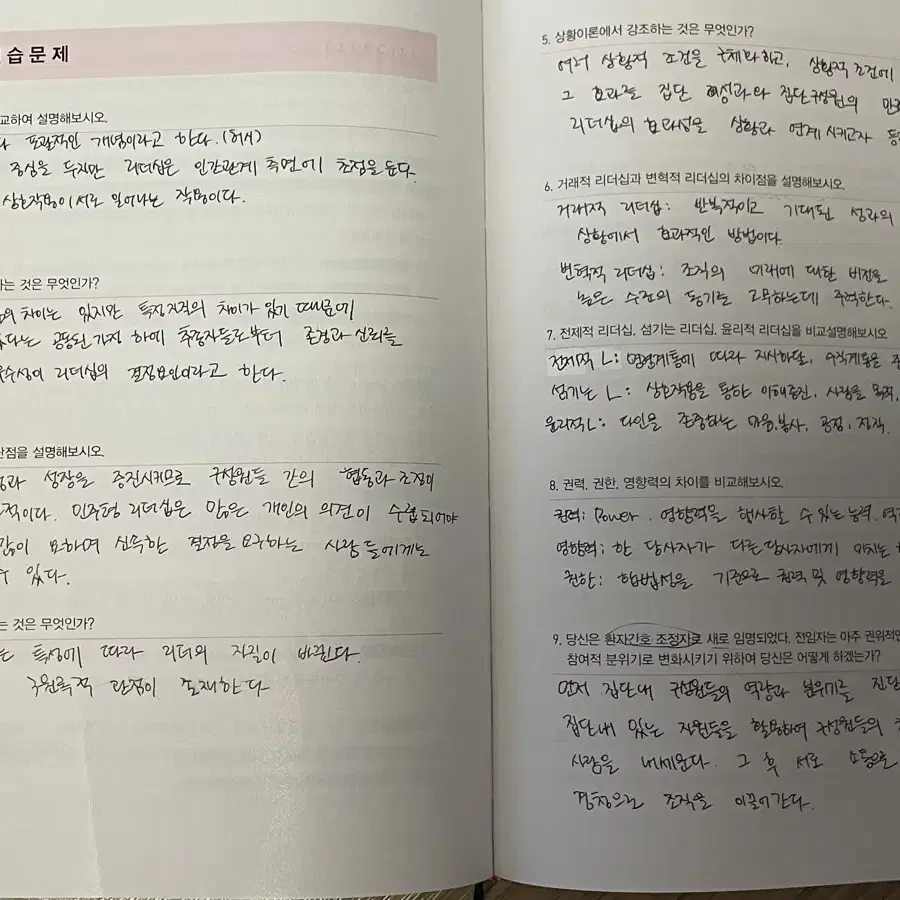 습문제
교하여 설명해보시오.
다 포괄적인 개념이라고 한다.(허시)
중심을 두지만 리더십은 인간관계 측면에 초점을 둔다.
상호작용이 서로 일어나는 작용이다.
하는 것은 무엇인가?
의 차이는 있지만 특정 차이가 있기 때문에
있다는 공통된 가정 하에 추종자들로부터 존경과 신뢰를
우수성이 리더십의 결정요인이라고 한다.
단점을 설명해보시오.
성장을 증진시키므로 구성원들 간의 협동과 조정이
적이다. 민주형 리더십은 많은 개인의 의견이 수렴되어야
많이 요하며 신속한 결정을 요구하는 사람들에게는
수 있다.
는 것은 무엇인가?
특성에 따라 리더의 자질이 바뀐다.
관점이 존재한다
5. 상황이론에서 강조하는 것은 무엇인가?
여러 상황적 조건을 구체화하고, 상황적 조건에
그 효과를 집단 성과와 집단구성원의 만
리더십의 효과성을 상황과 연계시키고자
6. 거래적 리더십과 변혁적 리더십의 차이점을 설명해보시오.
거래적 리더십: 반복적이고 기대된 성과의
상황에서 효과적인 방법이다.
변혁적 리더십: 조직의 미래에 대한 비전을
높은 수준의 동기를 고무하는데 주력한다.
7. 전제적 리더십, 섬기는 리더십, 윤리적 리더십을 비교설명해보시오
전제적 L: 명령계통에 따라 지시하달,
섬기는 L: 상호작용을 통한 이해증진, 사람을 목적,
윤리적 L: 타인을 존중하는 마음, 봉사, 공정, 정직.
8. 권력, 권한, 영향력의 차이를 비교해보시오.
권력: Power. 영향력을 행사할 수 있는 능력.
영향력: 한 당사자가 다른 당사자에게 미치는
권한: 합법성을 기준으로 권력 및 영향력을
9. 당신은 환자간호 조정자로 새로 임명되었다. 전임자는 아주 권위적인
참여적 분위기로 변화시키기 위하여 당신은 어떻게 하겠는가?
먼저 집단내 구성원들의 역량과 분위기를 진단
집단내 있는 자원들을 활용하여 구성원들의
사람을 내세운다. 그 후 서로 소통으로
경청으로 조직을 이끌어간다.